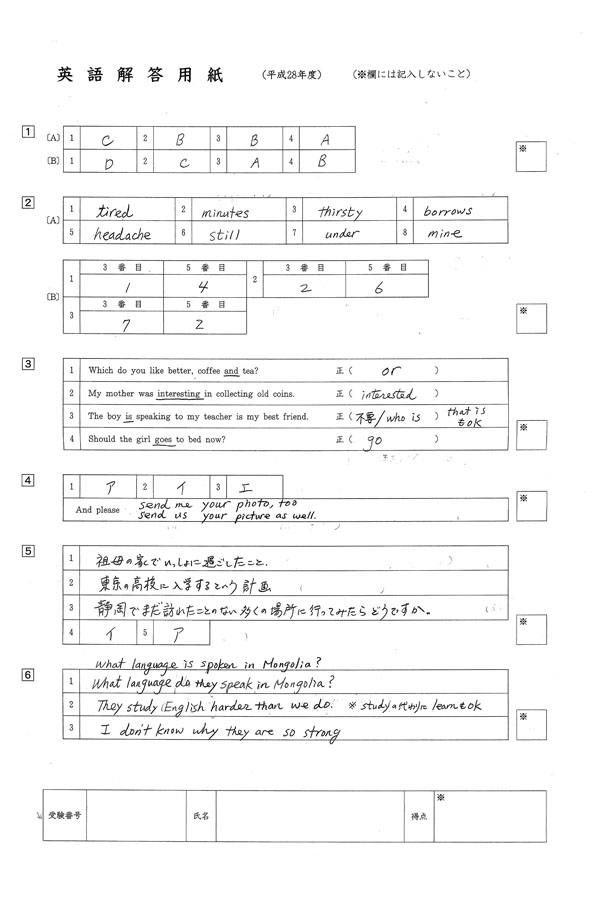 英語解答用紙 (平成28年度) (※欄には記入しないこと)
1
[A] 1 C 2 B 3 B 4 A
[B] 1 D 2 C 3 A 4 B
※
2
[A] 1 tired 2 minutes 3 thirsty 4 borrows
5 headache 6 still 7 under 8 mine
[B] 1 3番目 5番目 2 3番目 5番目
1 4 2 6
3 3番目 5番目
7 2
※
3
1 Which do you like better, coffee and tea? 正( or )
2 My mother was interesting in collecting old coins. 正( interested )
3 The boy is speaking to my teacher is my best friend. 正( 不要/who is ) that is もOK
4 Should the girl goes to bed now? 正( go )
※
4
1 ア 2 イ 3 エ
And please send me your photo, too
send us your picture as well.
※
5
1 祖母の家でいっしょに過ごしたこと.
2 東京の高校に入学するという計画
3 静岡でまだ訪れたことのない多くの場所に行ってみたらどうですか。
4 イ 5 ア
※
What language is spoken in Mongolia?
6
1 What language do they speak in Mongolia?
2 They study English harder than we do. ※studyの代わりに learnもOK
3 I don't know why they are so strong
※
受験番号 氏名 得点 ※